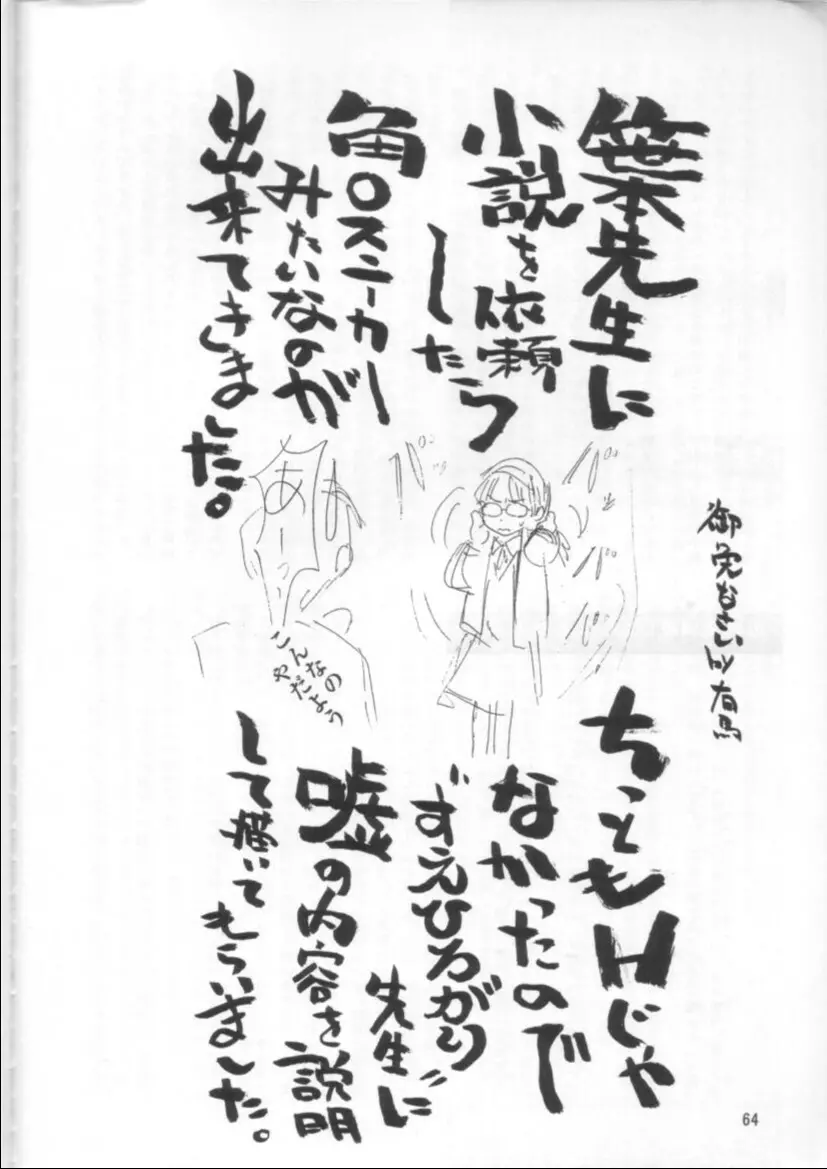 笹本先生に
小説を依頼
したら
角○スニーカー
みたいなのが
出来てきました。
バ
バッ
バ
バ
あー
あー
こんなの
やだよう
御免なさい by 有馬
ちっともHじゃ
なかったので
"すえひろがり"
先生に
嘘の内容を説明
して描いて
もらいました。
64